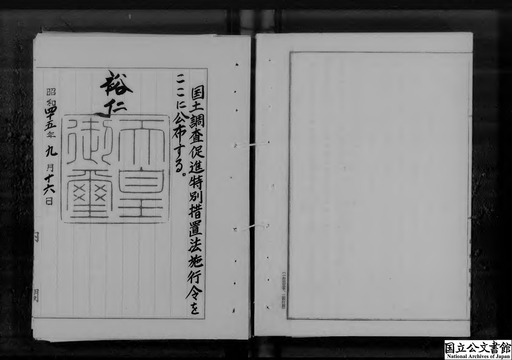 国土調査促進特別措置法施行令を
ここに公布する。
裕仁
天皇
御璽
昭和四十五年九月十六日
国立公文書館
National Archives of Japan